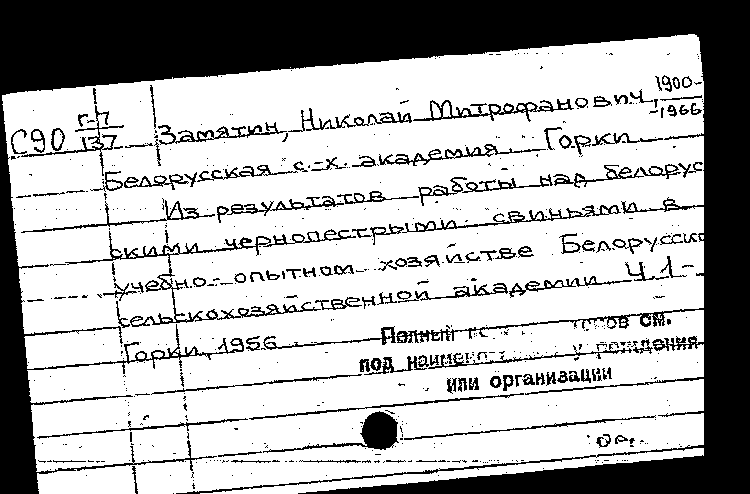 С90 г-7/137 Замятин, Николай Митрофанович, 1900-
-1966
Белорусская с.-х. академия. Горки.
Из результатов работы над белорус
скими чернопестрыми свиньями в
учебно-опытном хозяйстве Белорусско
сельскохозяйственной академии Ч.1-
Горки, 1956.
Полный см.
под рождения
или организации